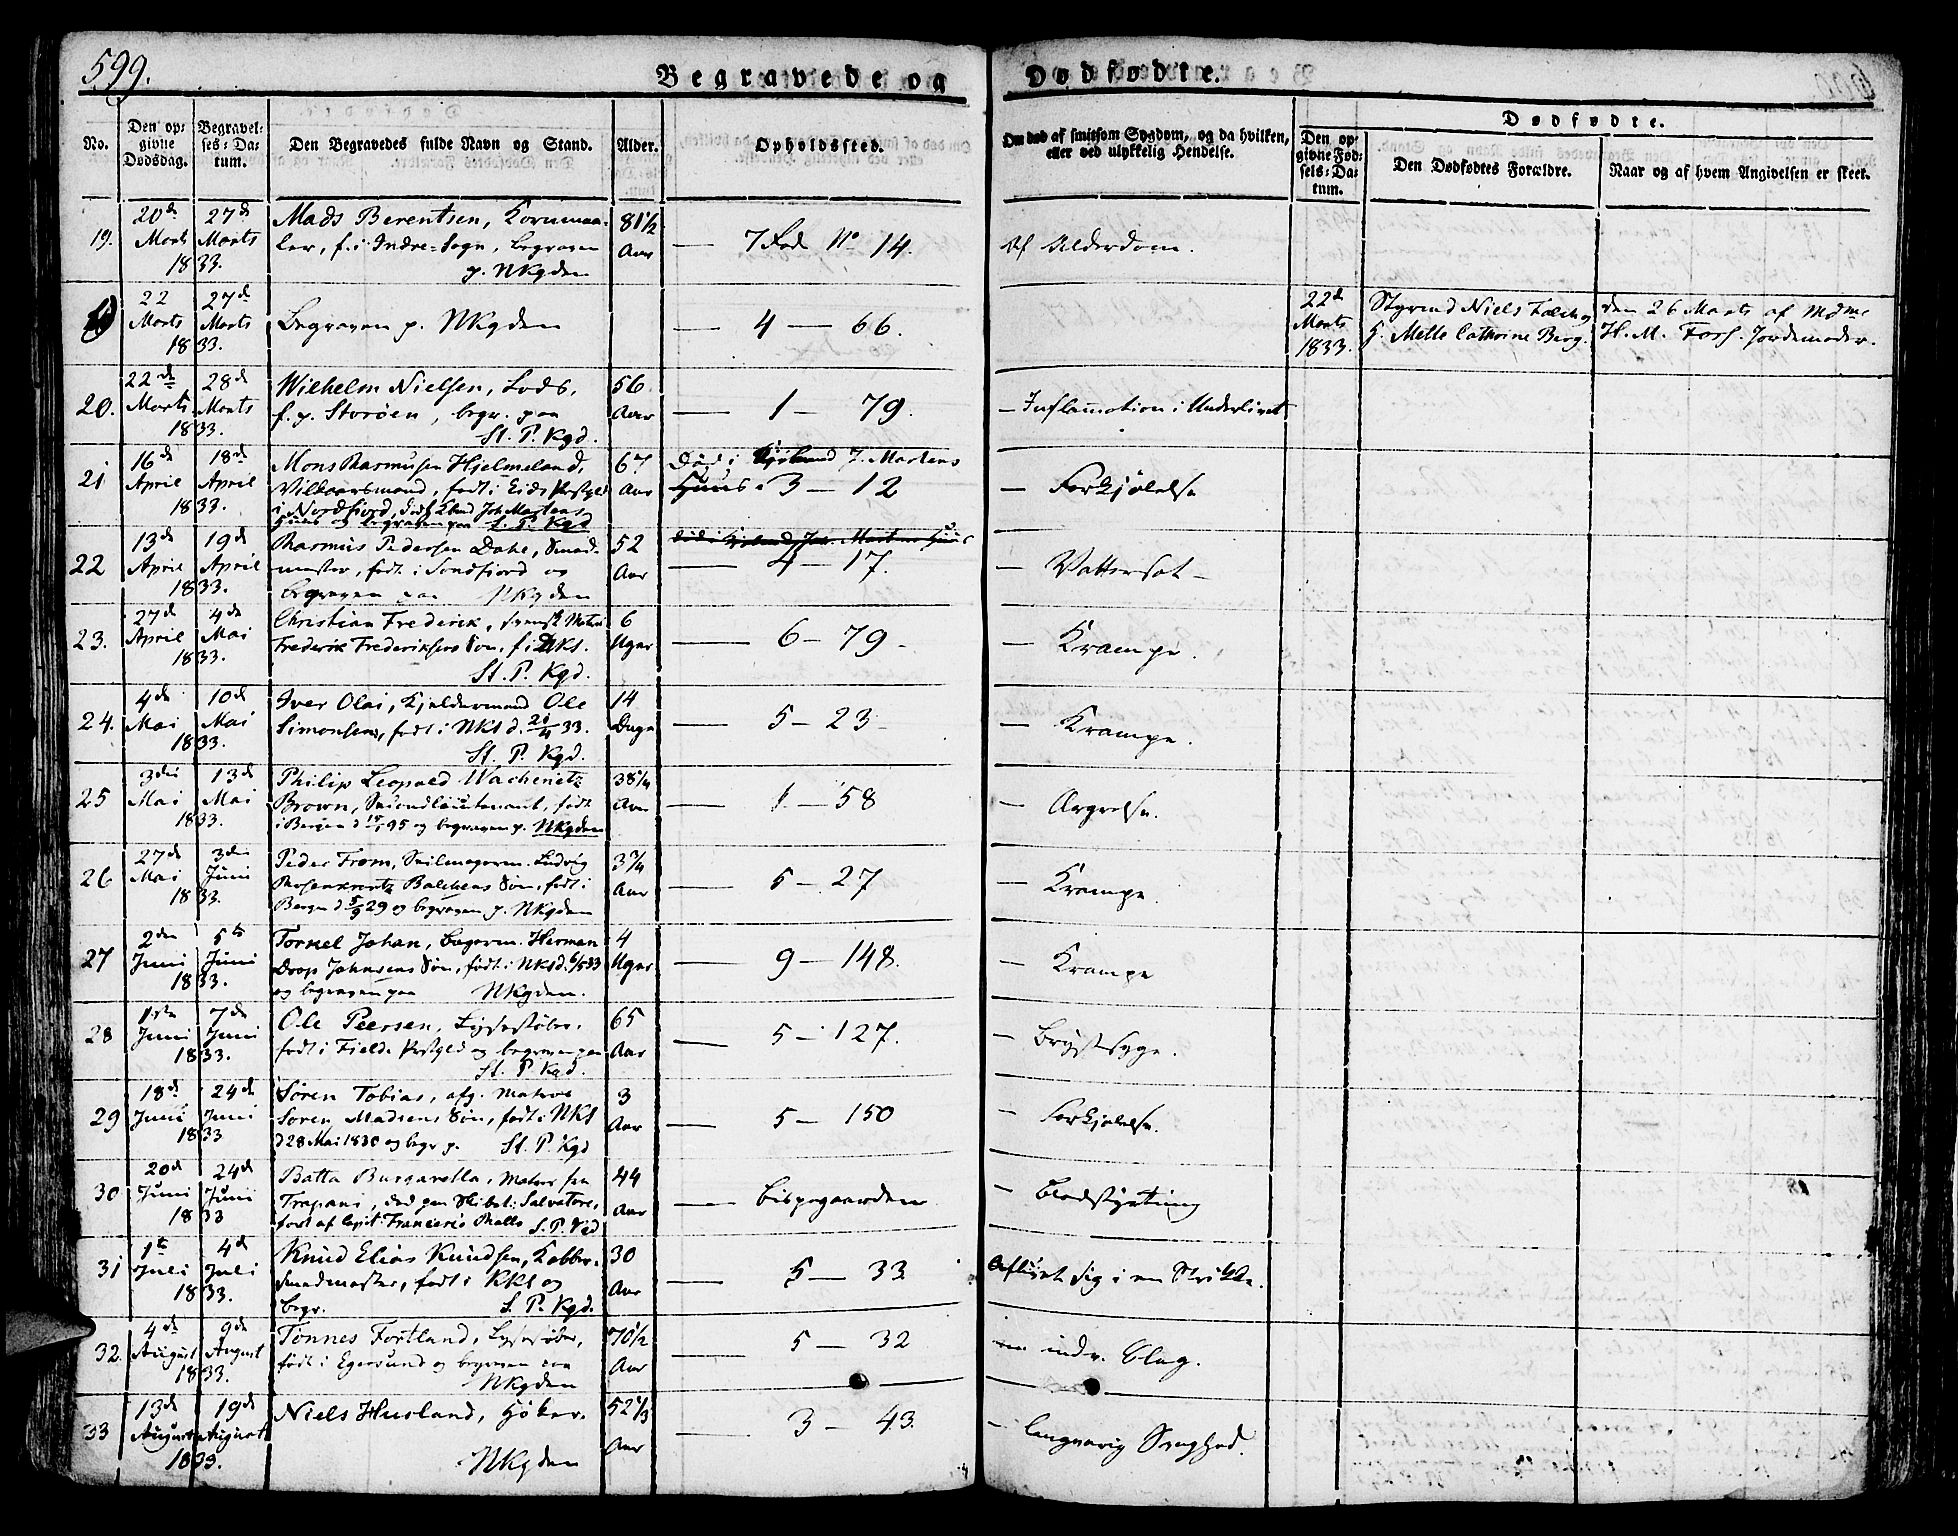 599.
Begravede og Dødfødte.
No.
Den op-
givne
Dødsdag.
Begravel-
ses-Da-
tum.
Den Begravedes fulde Navn og Stand.
Alder.
Opholdssted.
Om død af smitsom Sygdom, og da hvilken,
eller ved ulykkelig Hendelse.
Dødfødte.
Den op-
givne Fød-
sels-Da-
tum.
Den Dødfødtes Forældre.
Naar og af hvem Angivelsen er skeet.
19.
20de Marts 1833.
27de Marts
Mads Berentsen, Kornmaa-
ler, f. i Indre-Sogn, begraven
p. NKgden
81 1/2 Aar
7 Rode No 14.
Af Alderdom.
22 Marts 1833.
27de Marts
Begraven p. NKgden
4 — 66.
22de Marts 1833.
Styrmd Niels
H. Mette Cathrine Berg.
den 26 Marts af Mdme
H. M. Jordemoder.
20.
22de Marts 1833.
28de Marts
Wilhelm Nielsen, Lods,
f. p. Storøen, begr. paa
St. P. Kgd.
56 Aar
1 — 79.
— Inflammation i Underlivet
21
16de April 1833.
18de April
Mons Rasmusen Hjelmeland,
Vilkaarsmand, født i Eids Prstgld
i Nordfjord, død i Joh. Martens
Huus og begraven paa S. P. Kgd
67 Aar
Død i J. Martens
Huus. 3 — 12
— Forkjølelse
22
13de April 1833.
19de April
Rasmus Pedersen Dahe, Smed-
mester, født i Søndfjord og
begraven paa NKgden
52 Aar
4 — 17.
— Vattersot —
23.
27de April 1833.
4de Mai
Christian Frederik, Matros
Frederik Frederiksens Søn, f. i NKs.
St. P. Kgd.
6 Uger
6 — 79
— Krampe.
24.
4de Mai 1833.
10de Mai
Iver Olai, Kjeldermand Ole
Simonsens, født i NKs d. 20/4 33.
St. P. Kgd.
14 Dage
5 — 23
— Krampe.
25
3die Mai 1833.
13de Mai
Philip Leopold Wachenitz
Brown, Secondlieutenant, født
i Bergen 95 og begraven p. NKgden
38 1/4 Aar
1 — 58
— Ærgrelse.
26
27de Mai 1833.
3die Juni
Peder From, Seilmagerm. Ludvig
Rosenkrantz Balchens Søn, født i
Bergen d 5/9 29 og begraven p. NKgden
3 3/4 Aar
5 — 27
— Krampe.
27
2den Juni 1833.
5te Juni
Tornel Johan, Bagerm. Herman
Doop Johnsens Søn, født i NKs d. 6/5 33
og begraven paa NKgden.
4 Uger
9 — 148.
— Krampe
28
1ste Juni 1833.
7de Juni
Ole Peersen, Lysestøber,
født i Fjelde Prstgld og begraven paa
St. P Kgd.
65 Aar
5 — 127.
— Brystsyge.
29
18de Juni 1833
24de Juni
Søren Tobias, afg. Matros
Søren Madsens Søn, født i NKs
d 28 Mai 1830 og begr p. St. P. Kgd
3 Aar
5 — 150
— Forkjølelse.
30
20de Juni 1833
24de Juni
Batta Burgarella, Matros fra
Trapani, død paa Skibet: Salvatore,
ført af Capit: Francesco Mallo S. P. Kgd
44 Aar
Bispegaarden
— Blodstyrtning
31
1ste Juli 1833.
4de Juli
Knud Elias Knudsen, Kobber-
smedmester, født i KKs og
begr. S. P. Kgd.
30 Aar
5 — 33
Aflivet sig i en Strikke.
32.
4de August 1833.
9de August
Tønnes Fortland, Lysestøber,
født i Egersund og begraven paa
NKgden
70 1/2 Aar
5 — 32
— Slag.
33
13de August 1833.
19de August
Niels Husland, Høker.
NKgden
52 1/3 Aar
3 — 43
— langvarig Svaghed.